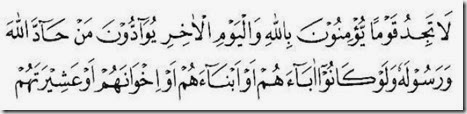 لَا تَجِدُ قَوْمًا يُّؤْمِنُوْنَ بِاللّٰهِ وَالْيَوْمِ الْاٰخِرِ يُوَاۤدُّوْنَ مَنْ حَاۤدَّ اللّٰهَ
وَرَسُوْلَهٗ وَلَوْ كَانُوْٓا اٰبَاۤءَهُمْ اَوْ اَبْنَاۤءَهُمْ اَوْ اِخْوَانَهُمْ اَوْ عَشِيْرَتَهُمْ